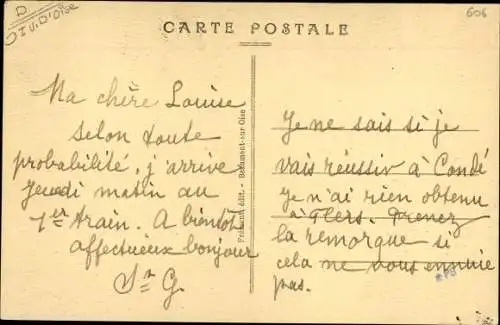 D
I V. D'Oise
606
CARTE POSTALE
Ma chère Louise
selon toute
probabilité, j'arrive
jeudi matin au
1er train. A bientôt
affectueux bonjour
Sr G.
Frémont édit. - Beaumont-sur-Oise
Je ne sais si je
vais réussir à Condé
je n'ai rien obtenu
à Flers. Prenez
la remorque si
cela ne vous ennuie
pas.